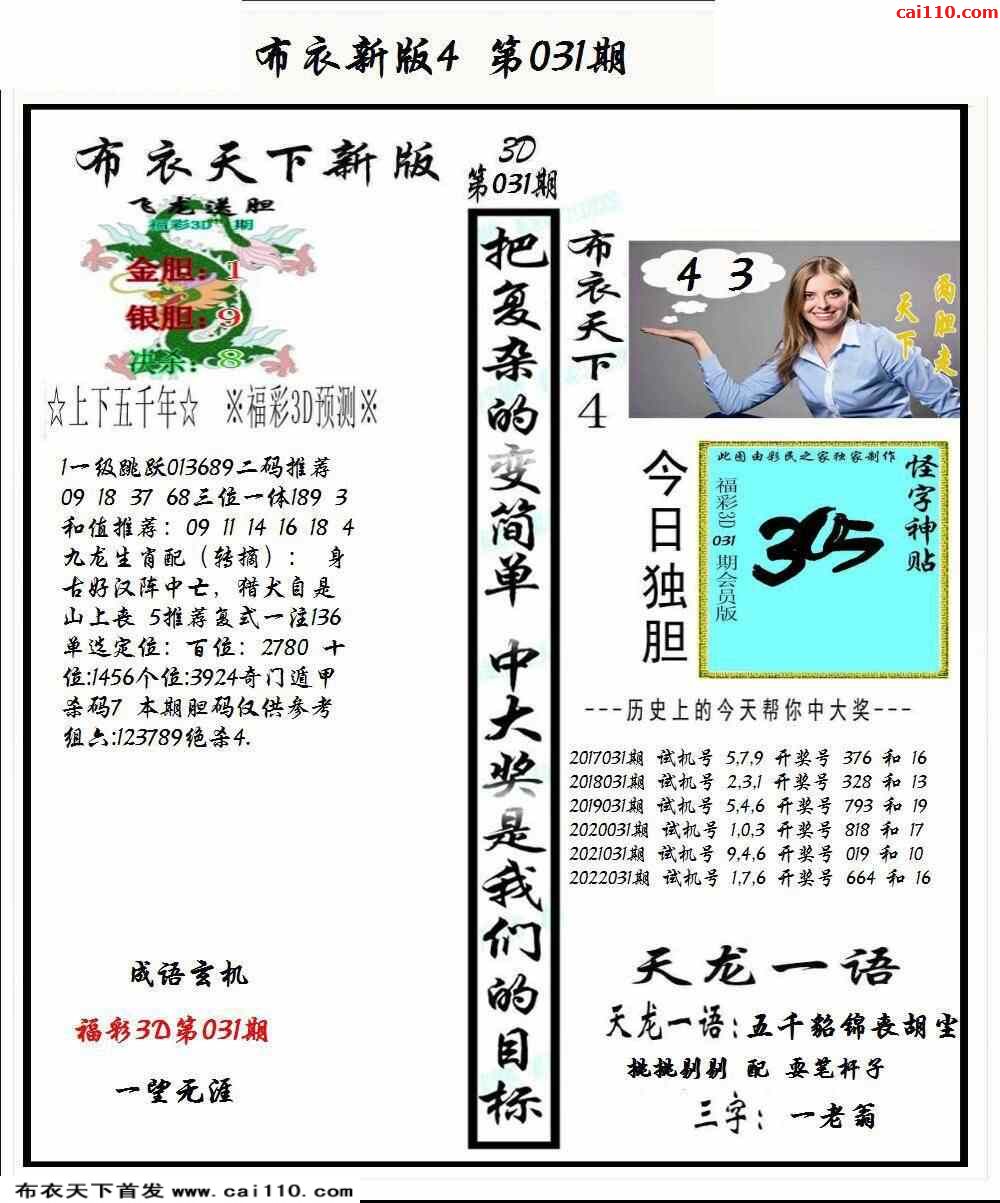 cai110.com
布衣新版4 第031期
布衣天下新版
飞龙送胆
福彩3D 期
金胆：1
银胆：9
决杀：8
☆上下五千年☆ ※福彩3D预测※
1一级跳跃013689二码推荐
09 18 37 68三位一体189 3
和值推荐：09 11 14 16 18 4
九龙生肖配（转摘）： 身
古好汉阵中亡，猎犬自是
山上丧 5推荐复式一注136
单选定位：百位：2780 十
位:1456个位:3924奇门遁甲
杀码7 本期胆码仅供参考
组六:123789绝杀4.
成语玄机
福彩3D第031期
一望无涯
3D
第031期
把复杂的变简单 中大奖是我们的目标
布衣天下4
4 3
两胆走
天下
今日独胆
此图由彩民之家独家制作
福彩3D 031 期会员版
怪字神贴
---历史上的今天帮你中大奖---
2017031期 试机号 5,7,9 开奖号 376 和 16
2018031期 试机号 2,3,1 开奖号 328 和 13
2019031期 试机号 5,4,6 开奖号 793 和 19
2020031期 试机号 1,0,3 开奖号 818 和 17
2021031期 试机号 9,4,6 开奖号 019 和 10
2022031期 试机号 1,7,6 开奖号 664 和 16
天龙一语
天龙一语：五千貂锦丧胡尘
挑挑剔剔 配 耍笔杆子
三字： 一老翁
布衣天下首发 www.cai110.com